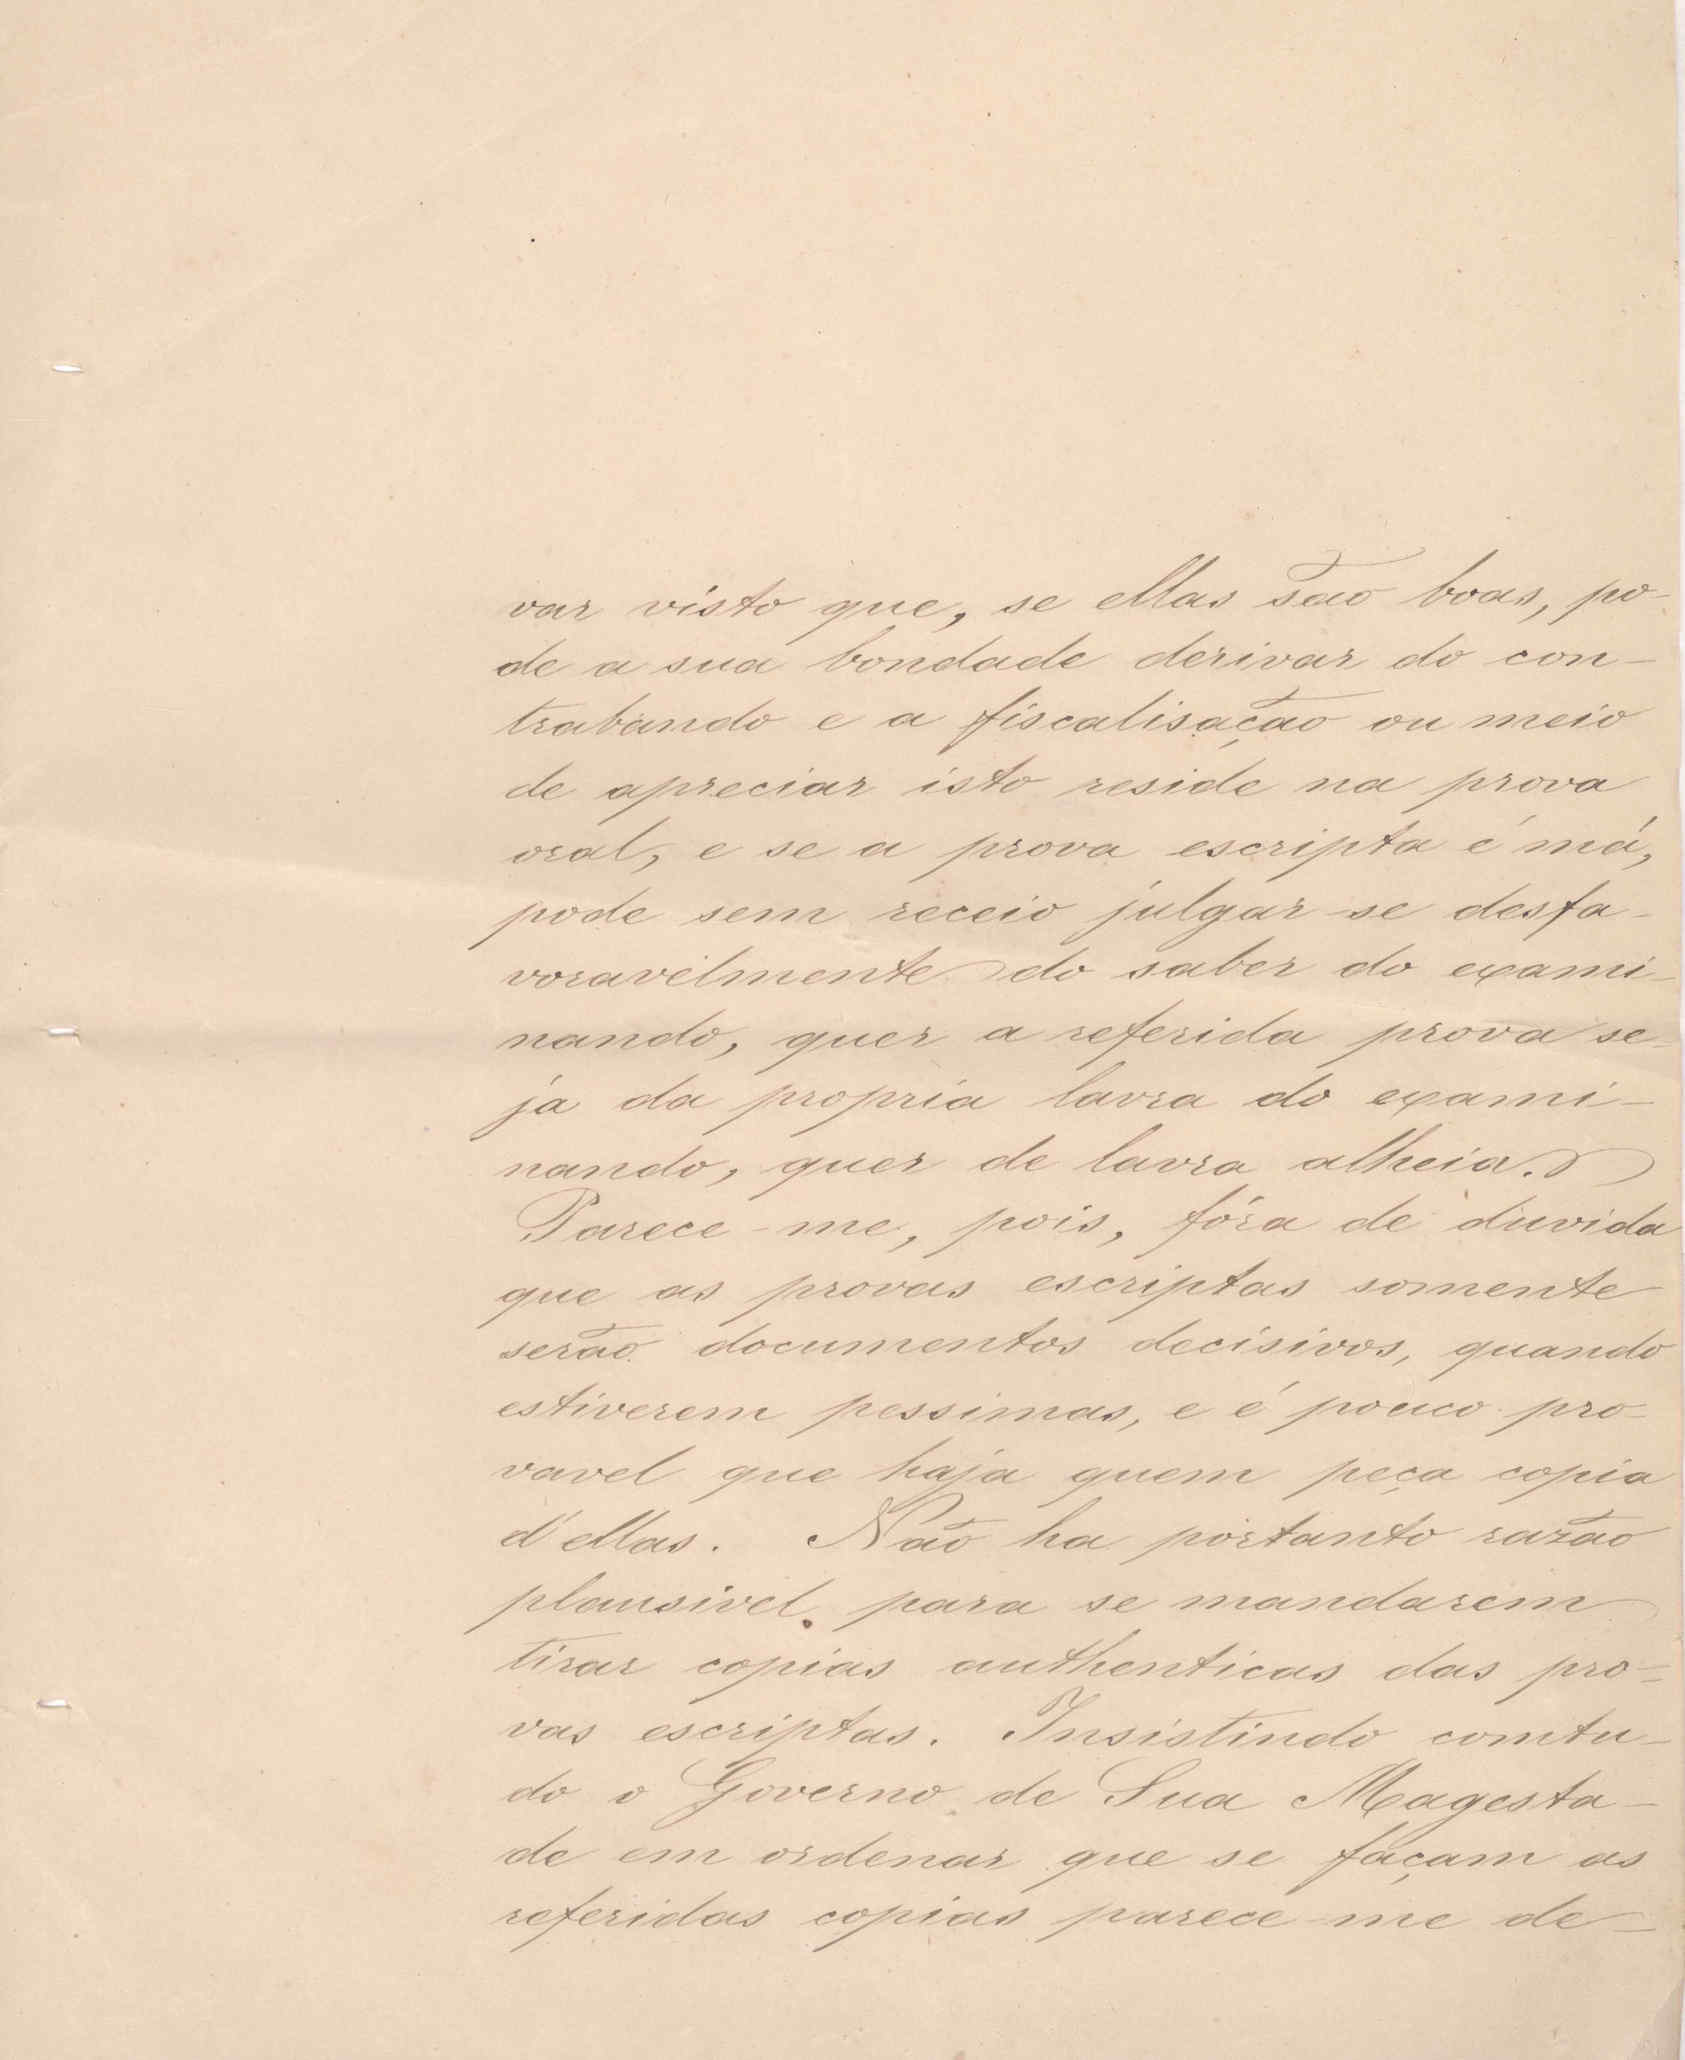 var visto que, se ellas são boas, po-
de a sua bondade derivar do con-
trabando e a fiscalisação ou meio
de apreciar isto reside na prova
oral, e se a prova escripta é má,
pode sem receio julgar-se desfa-
voravelmente do saber do exami-
nando, quer a referida prova se-
ja da propria lavra do exami-
nando, quer de lavra alheia.
Parece-me, pois, fóra de duvida
que as provas escriptas somente
serão documentos decisivos, quando
estiverem pessimas, e é pouco pro-
vavel que haja quem peça copia
d'ellas. Não ha portanto razão
plausivel para se mandarem
tirar copias authenticas das pro-
vas escriptas. Insistindo comtu-
do o Governo de Sua Magesta-
de em ordenar que se façam as
referidas copias parece-me de-